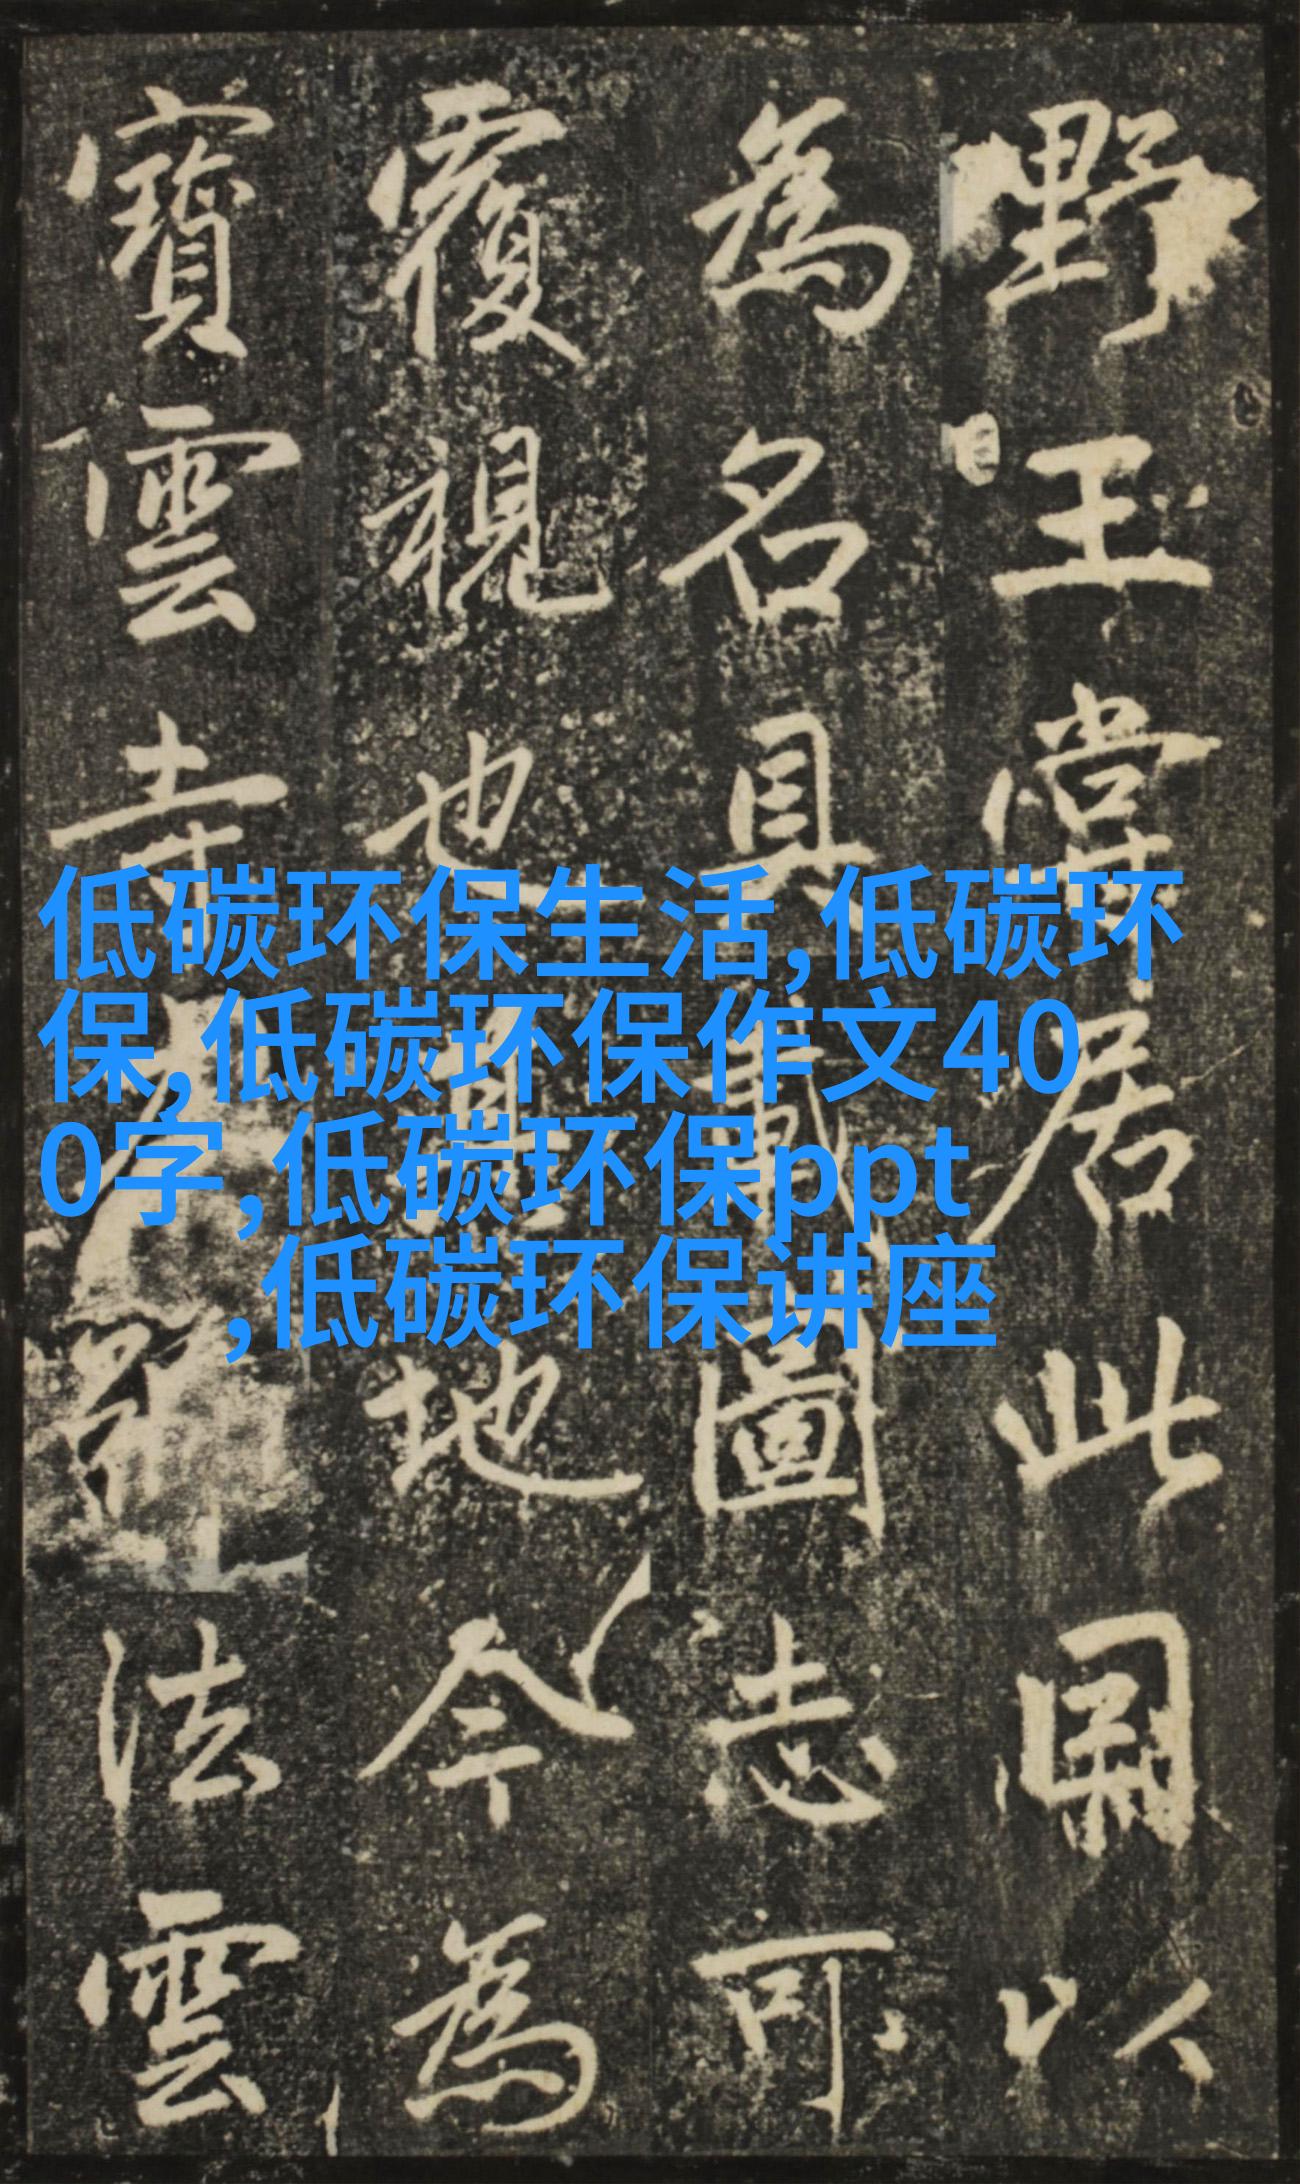 野王嘗居此閣以
為名具載圖志可
覆視也其地今為
寶雲寺
法雲
低碳环保生活,低碳环
保,低碳环保作文40
0字,低碳环保ppt
,低碳环保讲座